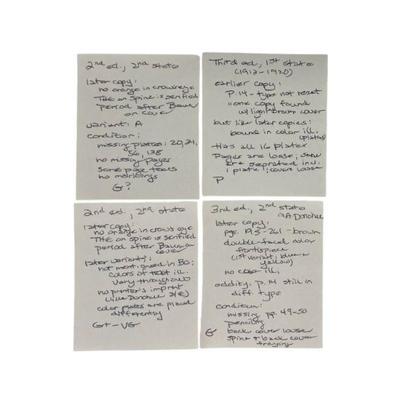 2nd ed., 2nd state
later copy:
no orange in crow's eye
Title on spine is serifed
period after Baum
on cover
variant: A
condition:
missing plates: 20, 34,
56, 138
no missing pages
some page tears
no markings
G?
Third ed., 1st state
(1913-1920)
earlier copy:
P. 14 - type not reset
one copy found
w/ light brown cover
but like later copies:
bound in color ill.
Has all 16 plates
Pages are loose, some
are separated incl.
1 plate; cover loose
P
2nd ed., 2nd state
later copy:
no orange in crow's eye
Title on spine is serifed
period after Baum
on cover
later variant:
not mentioned in Bo:
colors of text ill.
vary throughout
no printer's imprint
(like Donohue 3/e)
color plates are placed
differently
G+ - VG
3rd ed., 2nd state
later copy:
pgs. 193-261 - brown
double-faced color
frontispiece
(1st variant; blue &
yellow)
no color ill.
oddity: p. 14 still in
diff. type
condition:
missing pp. 49-50
penciling
G back cover loose
spine & back cover
fraying